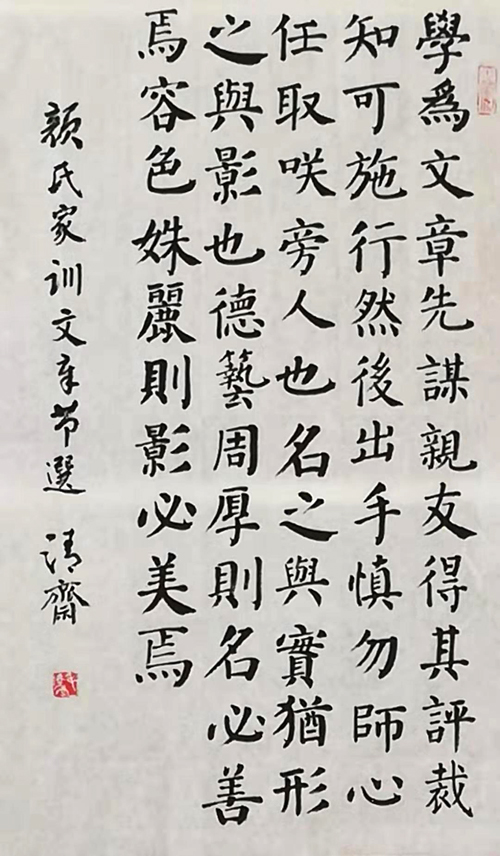 學爲文章先謀親友得其評裁
知可施行然後出手慎勿師心
任取咲旁人也名之與實猶形
之與影也德藝周厚則名必善
焉容色姝麗則影必美焉
颜氏家训文章节選 清齋